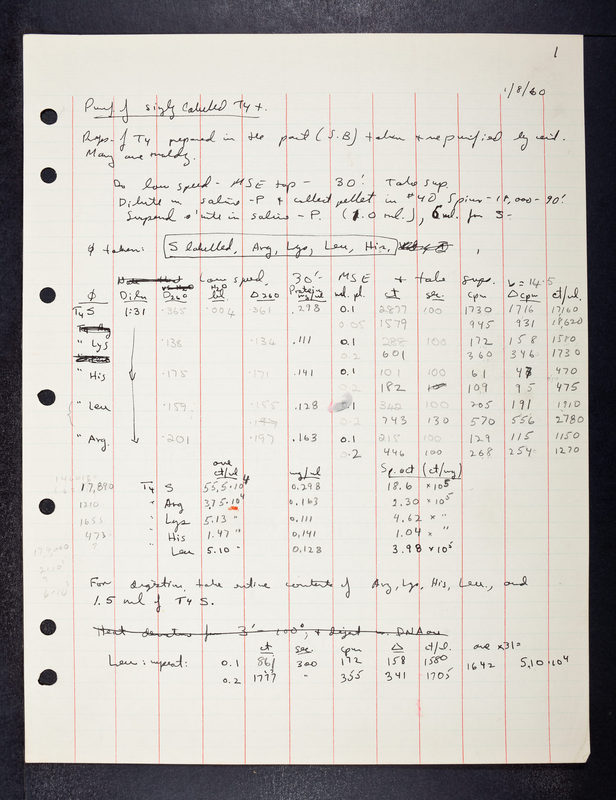 1
1/8/60
Purif of singly labelled T4+.
Preps. of T4 prepared in the past (S.B) taken + repurified by cent.
Many are moldy.
Do low speed - MSE top - 30'. Take sup
Dilute in saline -P + collect pellet in #40 Spinco - 18,000 - 90'
Suspend o'nite in saline - P. (1.0 ml.), 6 ml. for S-
φ taken: S labelled, Arg, Lys, Leu, His,
Low speed, 30'- MSE + take sups. b = 14.5
φ Diln D260 H2O bl Δ260 Protein mg/ml vol. pl. ct sec. cpm Δcpm ct/ul.
T4 S 1:31 .365 .004 .361 .298 0.1 2877 100 1730 1716 17,160
0.05 1579 945 931 18,620
" Lys .138 .134 .111 0.1 288 100 172 158 1580
0.2 601 360 346 1730
" His .175 .171 .141 0.1 101 100 61 47 470
0.2 182 109 95 475
" Leu .159 .155 .128 0.1 342 100 205 191 1910
0.2 743 130 570 556 2780
" Arg. .201 .197 .163 0.1 215 100 129 115 1150
0.2 446 100 268 254 1270
ave ct/ml mg/ml Sp. act (ct/mg)
17,890 T4 S 55.5·10⁴ 0.298 18.6 × 10⁵
1210 " Arg 3.75·10⁴ 0.163 2.30 × 10⁵
1655 " Lys 5.13 " 0.111 4.62 × "
473 " His 1.47 " 0.141 1.04 × "
? " Leu 5.10 " 0.128 3.98 × 10⁵
For digestion take entire contents of Arg, Lys, His, Leu., and
1.5 ml of T4 S.
Heat denature for 3' - 100°, + digest DNAase
ct sec cpm Δ ct/ul. ave ×310
Leu: repeat: 0.1 861 300 172 158 1580 1642 5.10·10⁴
0.2 1777 " 355 341 1705